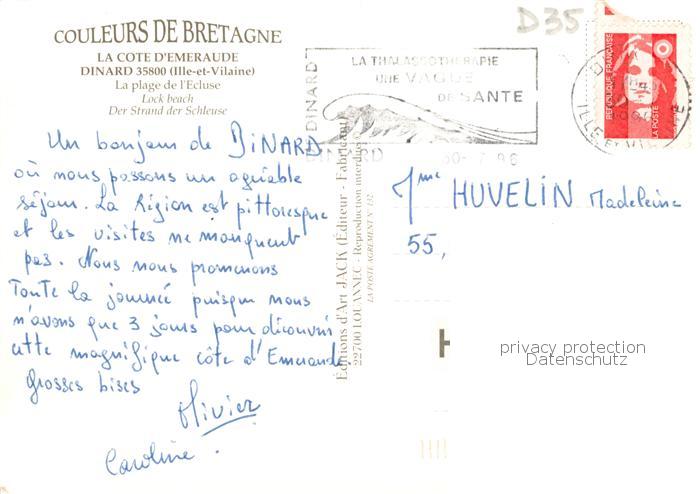 D35
COULEURS DE BRETAGNE
LA COTE D'EMERAUDE
DINARD 35800 (Ille-et-Vilaine)
La plage de l'Ecluse
Lock beach
Der Strand der Schleuse
LA THALASSOTHERAPIE
UNE VAGUE
DE SANTE
DINARD
DINARD
30-7-96
ILLE ET VILAINE
REPUBLIQUE FRANÇAISE
LA POSTE
Un bonjour de DINARD
où nous passons un agréable
séjour. La Région est pittoresque
et les visites ne manquent
pas. Nous nous promenons
Toute la journée puisque nous
n'avons que 3 jours pour découvrir
cette magnifique côte d'Emeraude
Grosses bises
Olivier
Caroline.
Editions d'Art JACK (Éditeur - Fabricant)
22700 LOUANNEC - Reproduction interdite
LA POSTE AGREMENT N° 132
Mme HUVELIN Madeleine
55,
privacy protection
Datenschutz